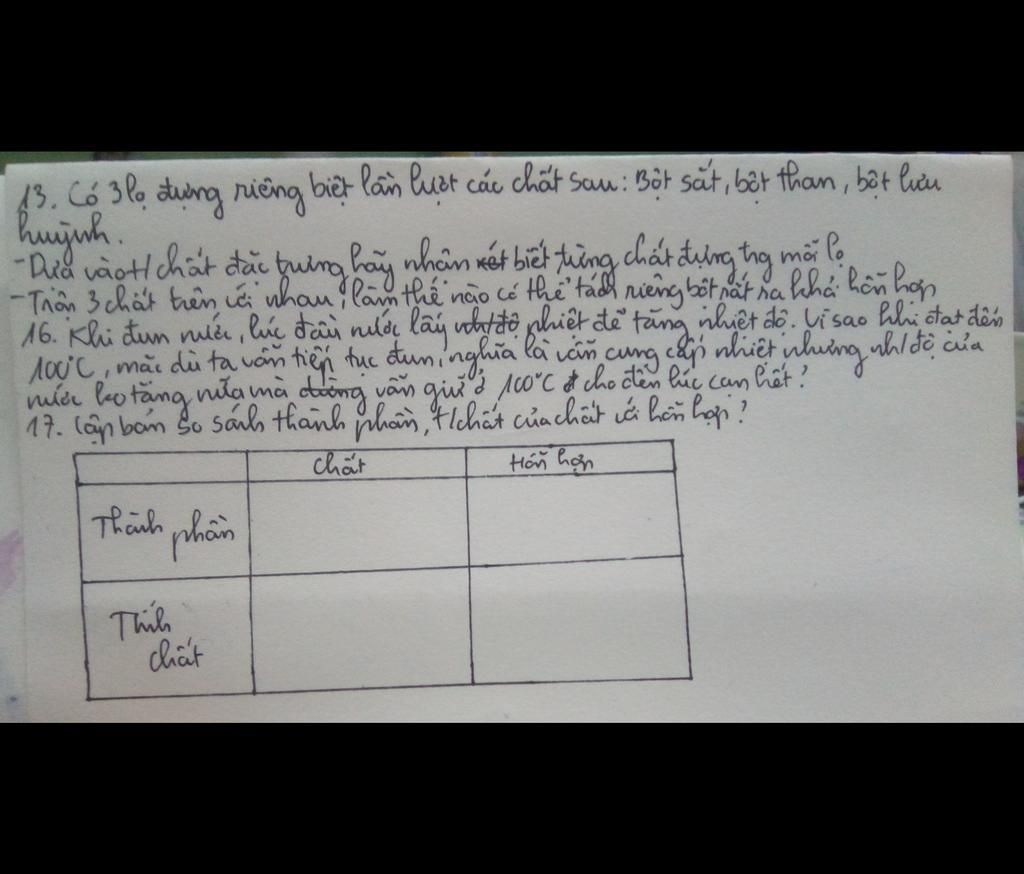 13. Có 3 lọ đựng riêng biệt lần lượt các chất sau: Bột sắt, bột than, bột lưu
huỳnh.
- Dựa vào t/chất đặc trưng hãy nhận xét biết từng chất đựng trg mỗi lọ
- Trộn 3 chất trên với nhau, làm thế nào có thể tách riêng bột sắt ra khỏi hỗn hợp
16. Khi đun nước, lúc đầu nước lấy nh/độ nhiệt để tăng nhiệt độ. Vì sao khi đạt đến
100°C, mặc dù ta vẫn tiếp tục đun, nghĩa là vẫn cung cấp nhiệt nhưng nh/độ của
nước ko tăng nữa mà đường vẫn giữ ở 100°C cho đến lúc cạn hết?
17. Lập bản so sánh thành phần, t/chất của chất với hỗn hợp?
Chất Hỗn hợp
Thành phần
Tính
chất